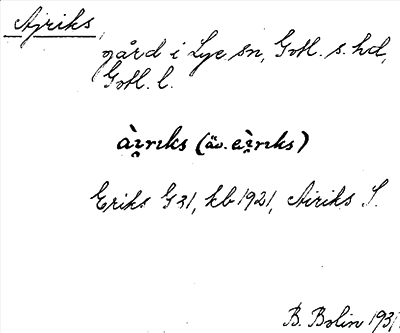 Ajriks,
gård i Lye sn, Gotl. s. hd,
Gotl. l.
àı̯rıks (äv. eı̯̀rıks)
Eriks G31, kb 1921, Airiks S.
B. Bolin 1931